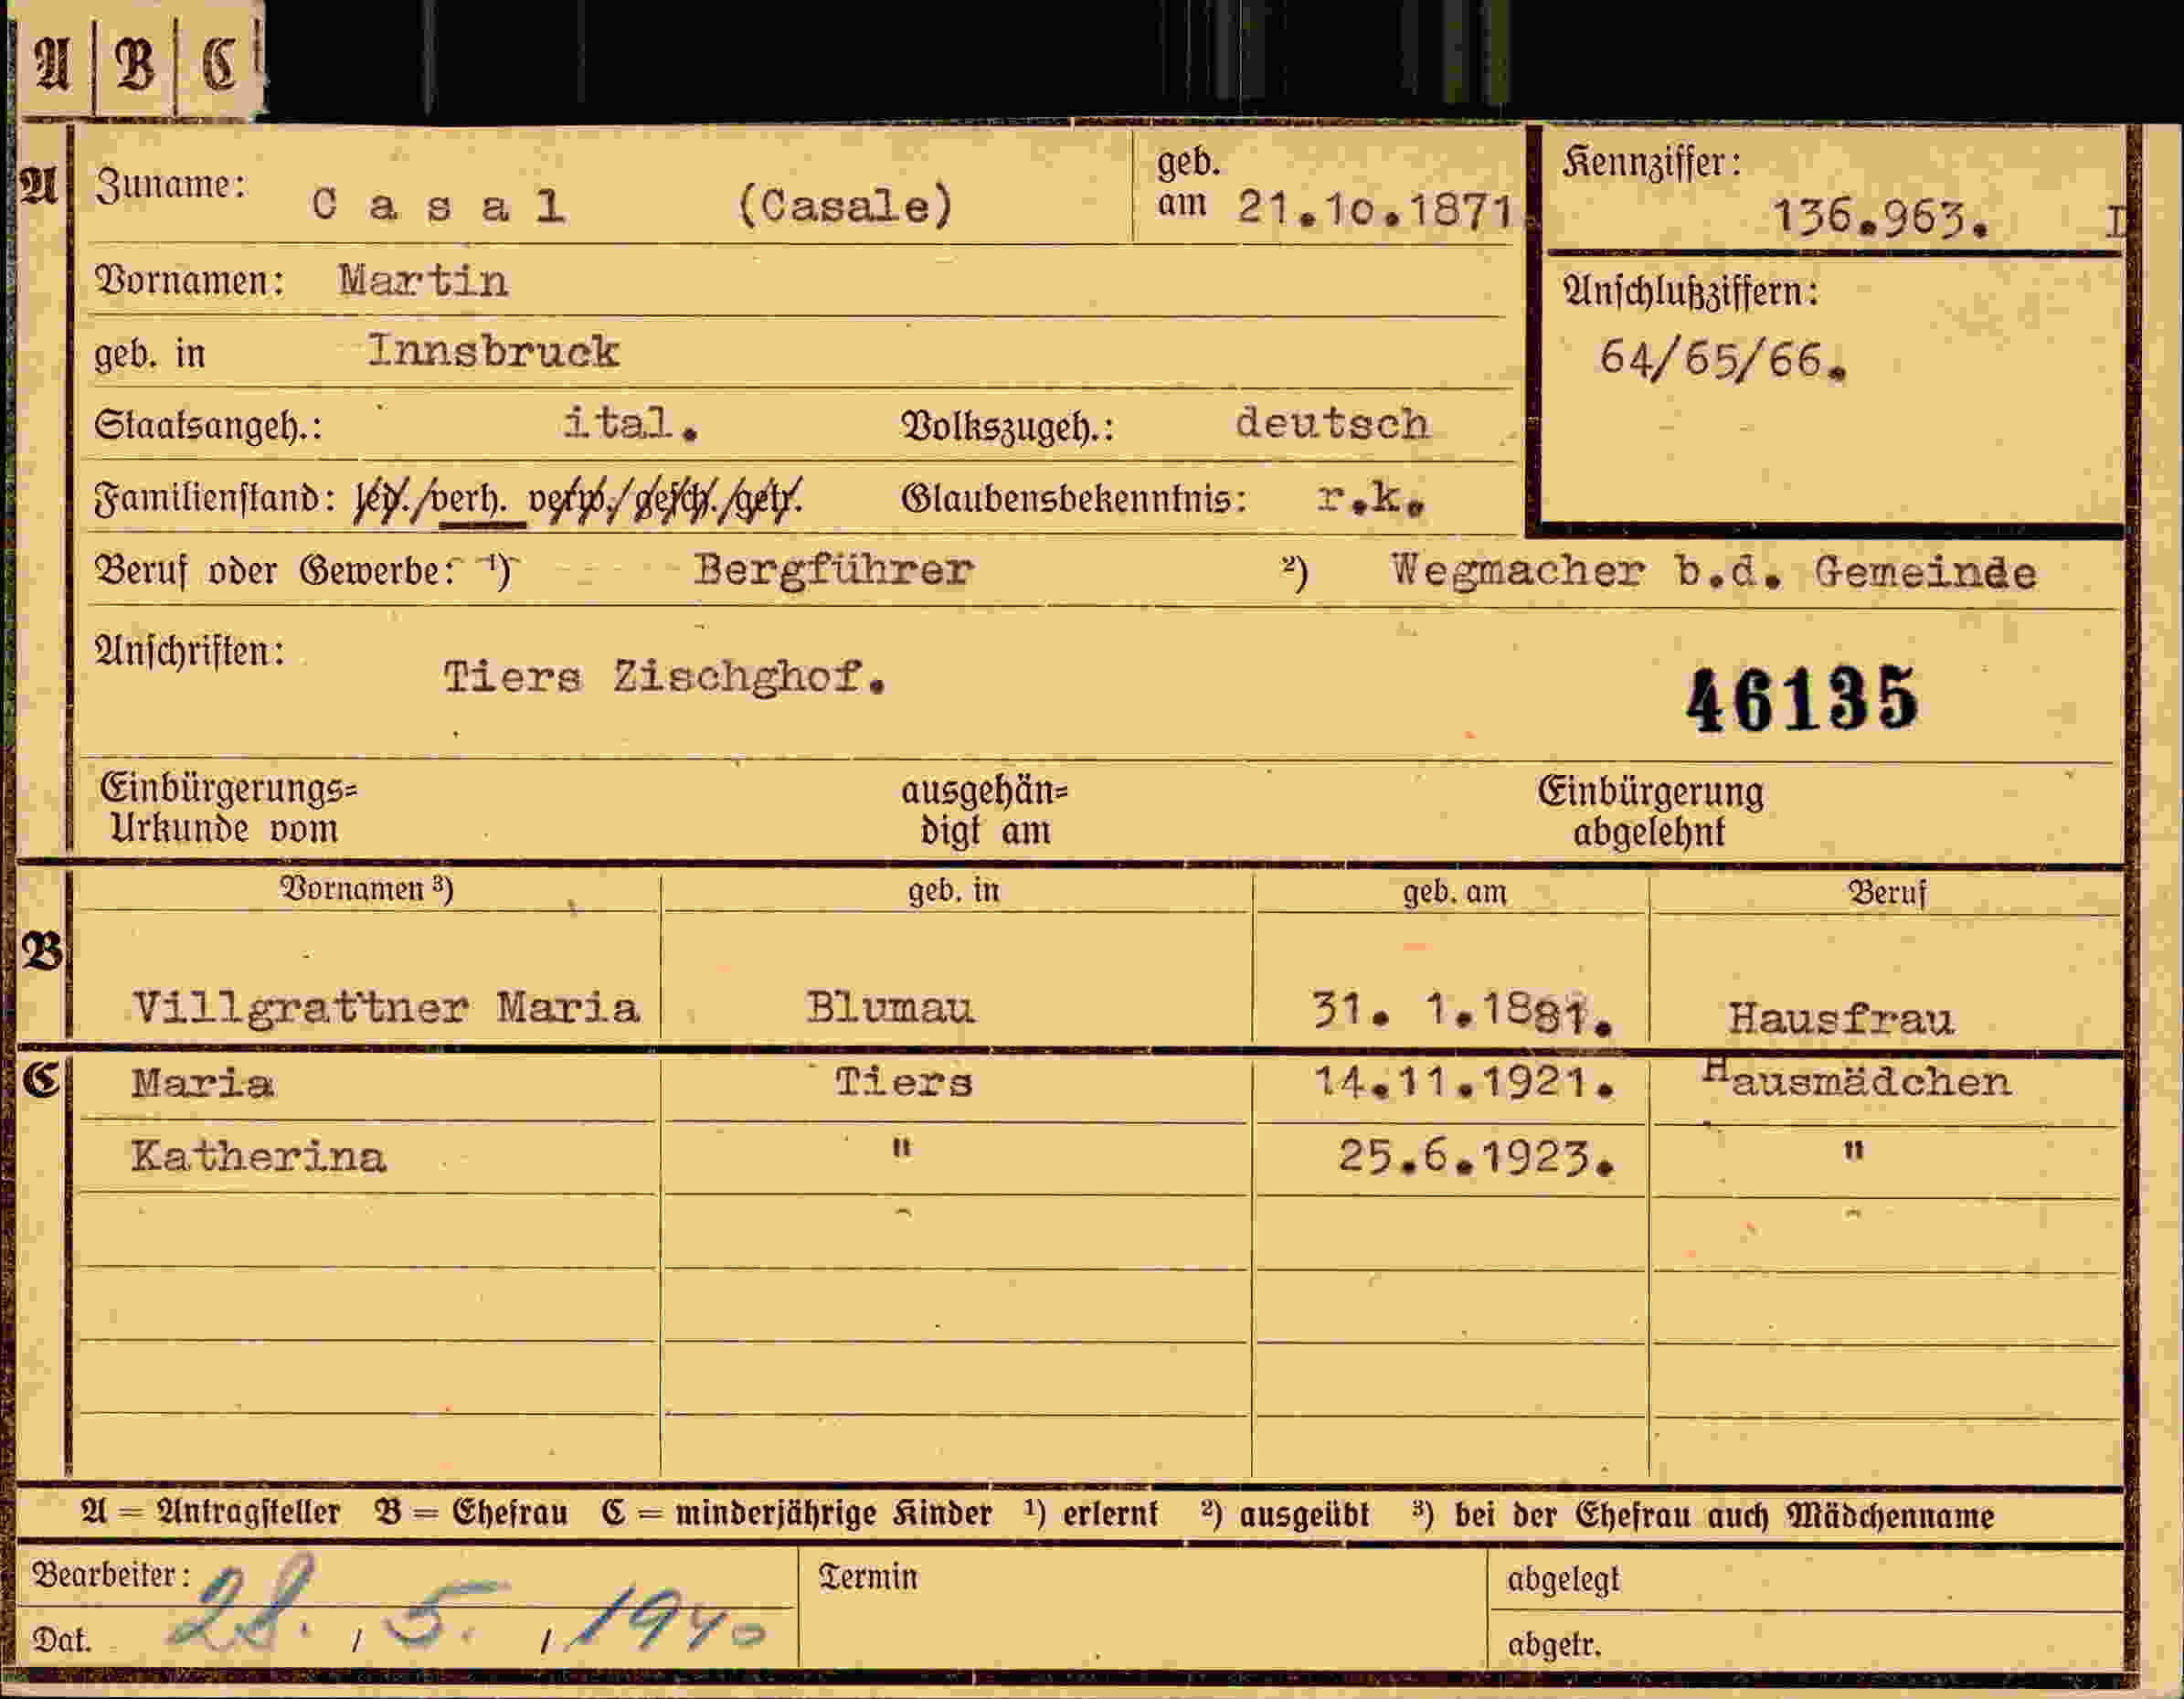 A B C
A Zuname: C a s a l (Casale) geb. am 21.10.1871 Kennziffer: 136.963. I
Vornamen: Martin Anschlußziffern:
geb. in Innsbruck 64/65/66.
Staatsangeh.: ital. Volkszugeh.: deutsch
Familienstand: led./verh. verw./gesch./getr. Glaubensbekenntnis: r.k.
Beruf oder Gewerbe: ¹) Bergführer ²) Wegmacher b.d. Gemeinde
Anschriften: Tiers Zischghof.
46135
Einbürgerungs= ausgehän= Einbürgerung
Urkunde vom digt am abgelehnt
Vornamen ³) geb. in geb. am Beruf
B Villgrattner Maria Blumau 31. 1.1881. Hausfrau
C Maria Tiers 14.11.1921. Hausmädchen
Katherina " 25.6.1923. "
A = Antragsteller B = Ehefrau C = minderjährige Kinder ¹) erlernt ²) ausgeübt ³) bei der Ehefrau auch Mädchenname
Bearbeiter: Termin abgelegt
Dat. 28. / 5. / 1940 abgetr.